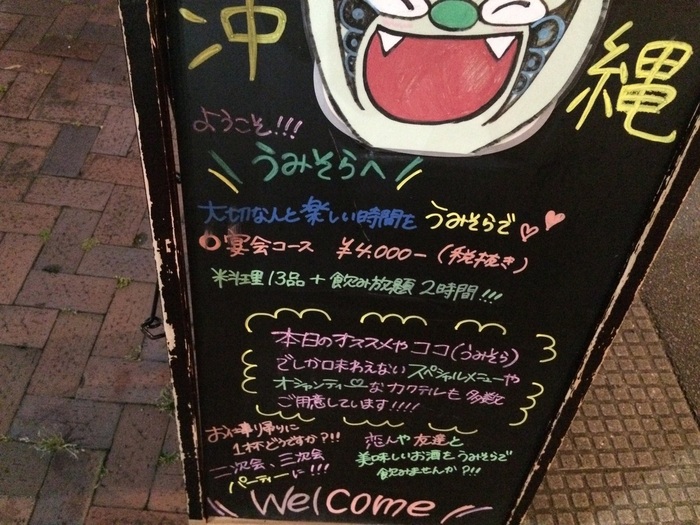 沖縄
ようこそ!!!
うみそらへ
大切な人と楽しい時間を うみそらで♡♥
○宴会コース ¥4.000-(税抜き)
料理13品+飲み放題2時間!!!
本日のオススメや ココ(うみそら)
でしか味わえない スペシャルメニューや
オシャンティ〜♡なカクテルも 多数
ご用意しています!!!!
お仕事帰りに
1杯どうですか?!!
二次会、三次会
パーティーに!!!
恋人や友達と
美味しいお酒をうみそらで
飲みませんか?!!
Welcome